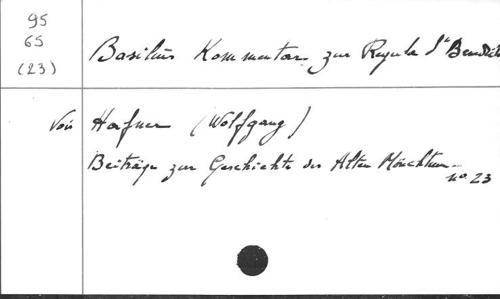 95
65
(23)
Basilius Kommentar zur Regula Sti Benedicti
Voir Hafner (Wolfgang)
Beiträge zur Geschichte des Alten Mönchtum
no 23